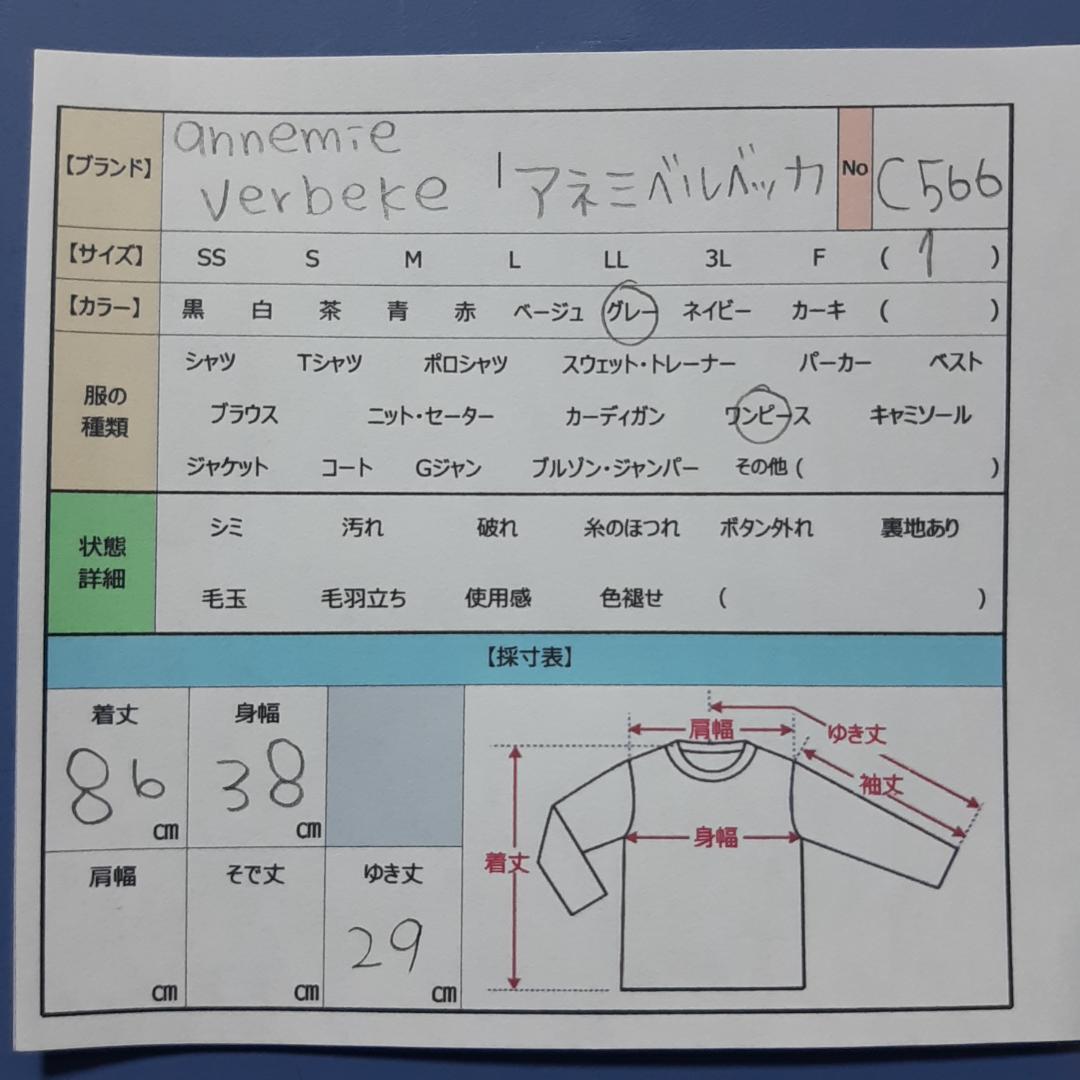 【ブランド】 annemie
verbeke アネミベルベッカ No C566
【サイズ】 SS S M L LL 3L F ( 1 )
【カラー】 黒 白 茶 青 赤 ベージュ グレー ネイビー カーキ ( )
服の
種類
シャツ Tシャツ ポロシャツ スウェット・トレーナー パーカー ベスト
ブラウス ニット・セーター カーディガン ワンピース キャミソール
ジャケット コート Gジャン ブルゾン・ジャンパー その他 ( )
状態
詳細
シミ 汚れ 破れ 糸のほつれ ボタン外れ 裏地あり
毛玉 毛羽立ち 使用感 色褪せ ( )
【採寸表】
着丈 身幅
86 cm 38 cm
肩幅 そで丈 ゆき丈
cm cm 29 cm
肩幅 ゆき丈
袖丈
身幅
着丈